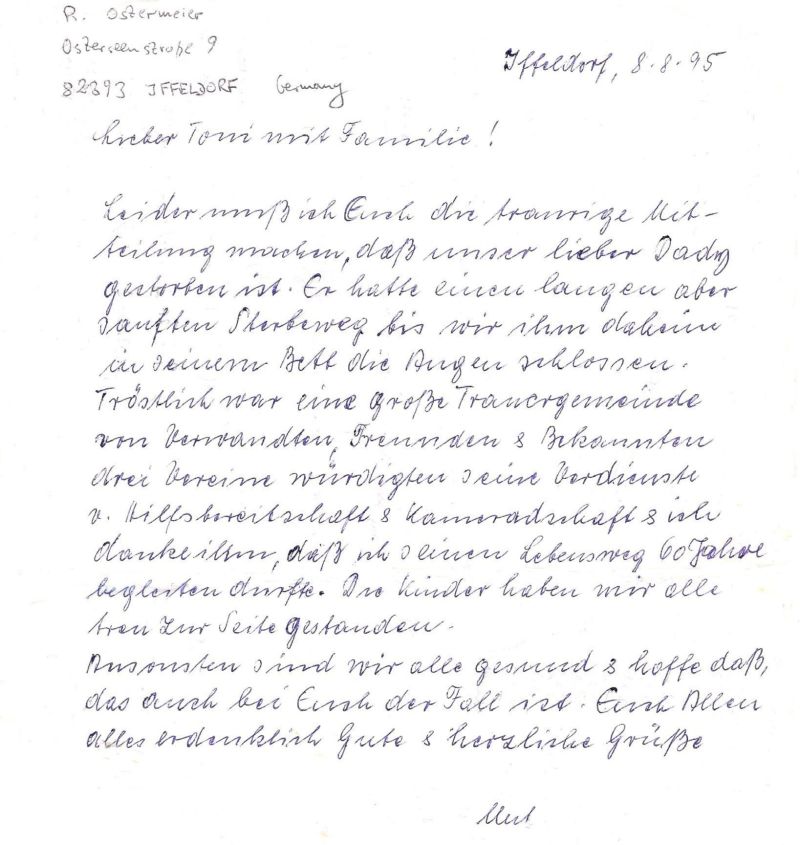 R. Ostermeier
Osterseenstraße 9
82393 IFFELDORF Germany
Iffeldorf, 8.8.95
Lieber Toni mit Familie!
Leider muß ich Euch die traurige Mit-
teilung machen, daß unser lieber Dady
gestorben ist. Er hatte einen langen aber
sanften Sterbeweg bis wir ihm daheim
in seinem Bett die Augen schlossen.
Tröstlich war eine große Trauergemeinde
von Verwandten, Freunden & Bekannten
drei Vereine würdigten seine Verdienste
v. Hilfsbereitschaft & Kameradschaft & ich
danke ihm, daß ich seinen Lebensweg 60 Jahre
begleiten durfte. Die Kinder haben mir alle
treu zur Seite gestanden.
Ansonsten sind wir alle gesund & hoffe daß,
das auch bei Euch der Fall ist. Euch Allen
alles erdenklich Gute & herzliche Grüße